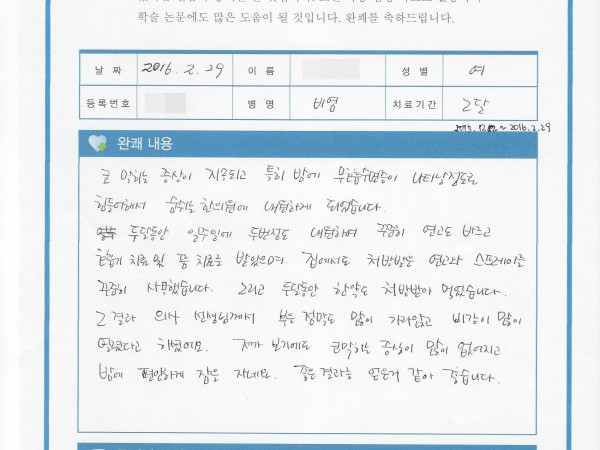 학술 논문에도 많은 도움이 될 것입니다. 완쾌를 축하드립니다.
날 짜 2016. 2. 29 이 름 성 별 여
등록번호 병 명 비염 치료기간 2달
2015. 12.02 ~ 2016.2.29
완쾌 내용
코 막히는 증상이 지속되고 특히 밤에 무호흡수면증이 나타날정도로
힘들어해서 숨쉬는한의원에 내원하게 되었습니다.
두달동안 일주일에 두번정도 내원하여 꾸준히 연고도 바르고
호흡기 치료 및 뜸 치료를 받았으며 집에서도 처방받은 연고와 스프레이를
꾸준히 사용했습니다. 그리고 두달동안 한약도 처방받아 먹었습니다.
그 결과 의사 선생님께서 부은 점막도 많이 가라앉고 비강이 많이
넓어졌다고 하셨어요. 제가 보기에도 코막히는 증상이 많이 없어지고
밤에 편안하게 잠을 자네요. 좋은 결과를 얻은거 같아 좋습니다.